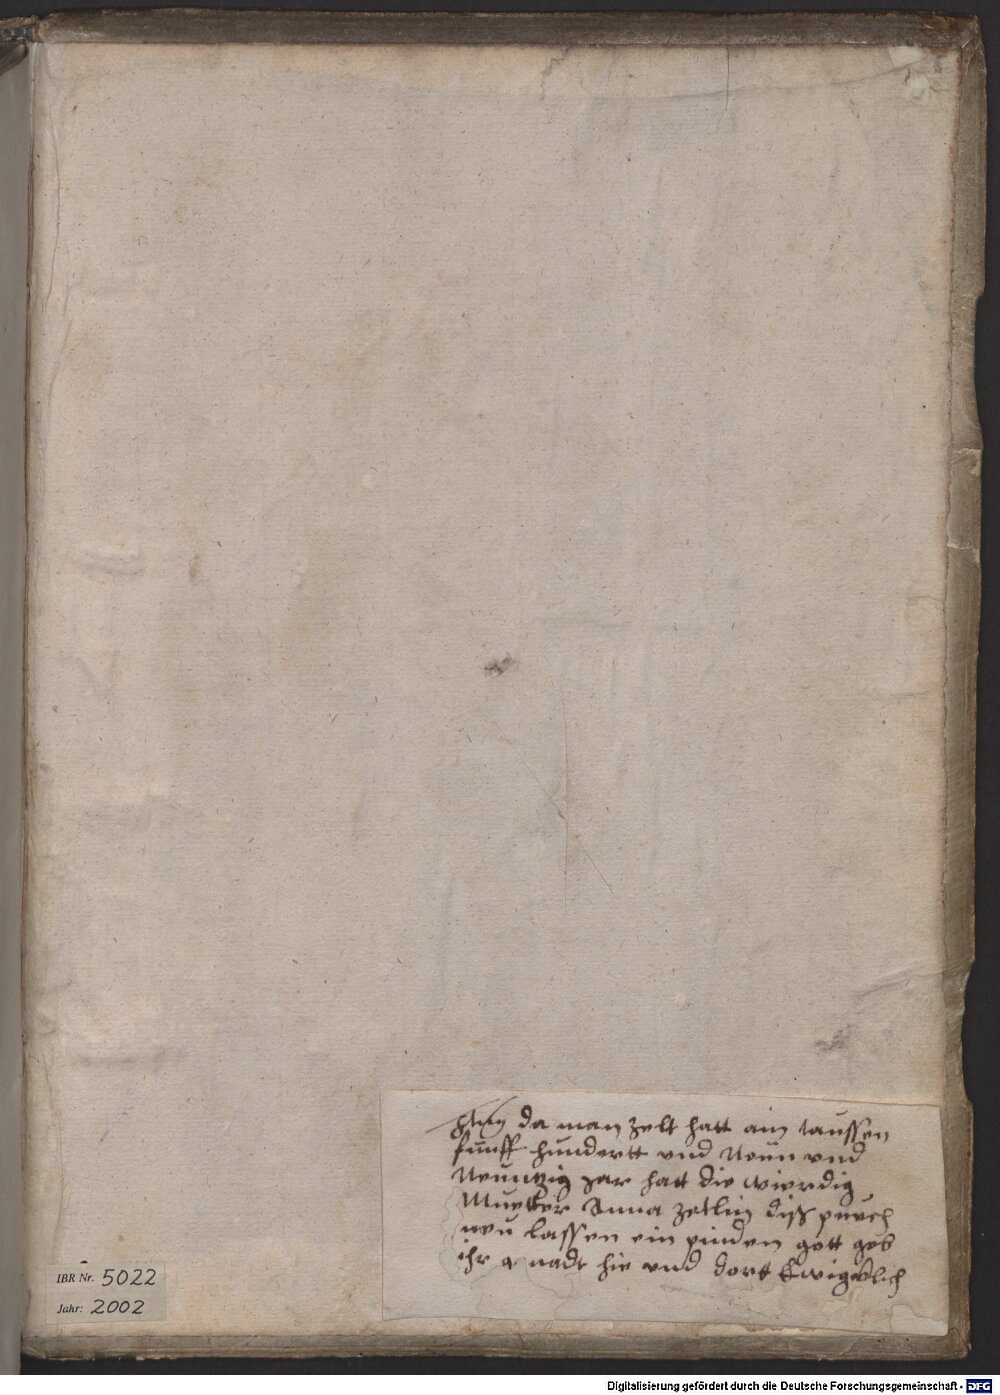 da man zelt hatt ain taussen
funff hundertt und Neun und
Neuntzig Jar hatt die wierdig
Muetter Anna Zetlin diss puech
neu lassen ein pinden gott geb
ihr g nadt hie und dort Ewigklich
IBR Nr. 5022
Jahr: 2002
Digitalisierung gefördert durch die Deutsche Forschungsgemeinschaft - DFG